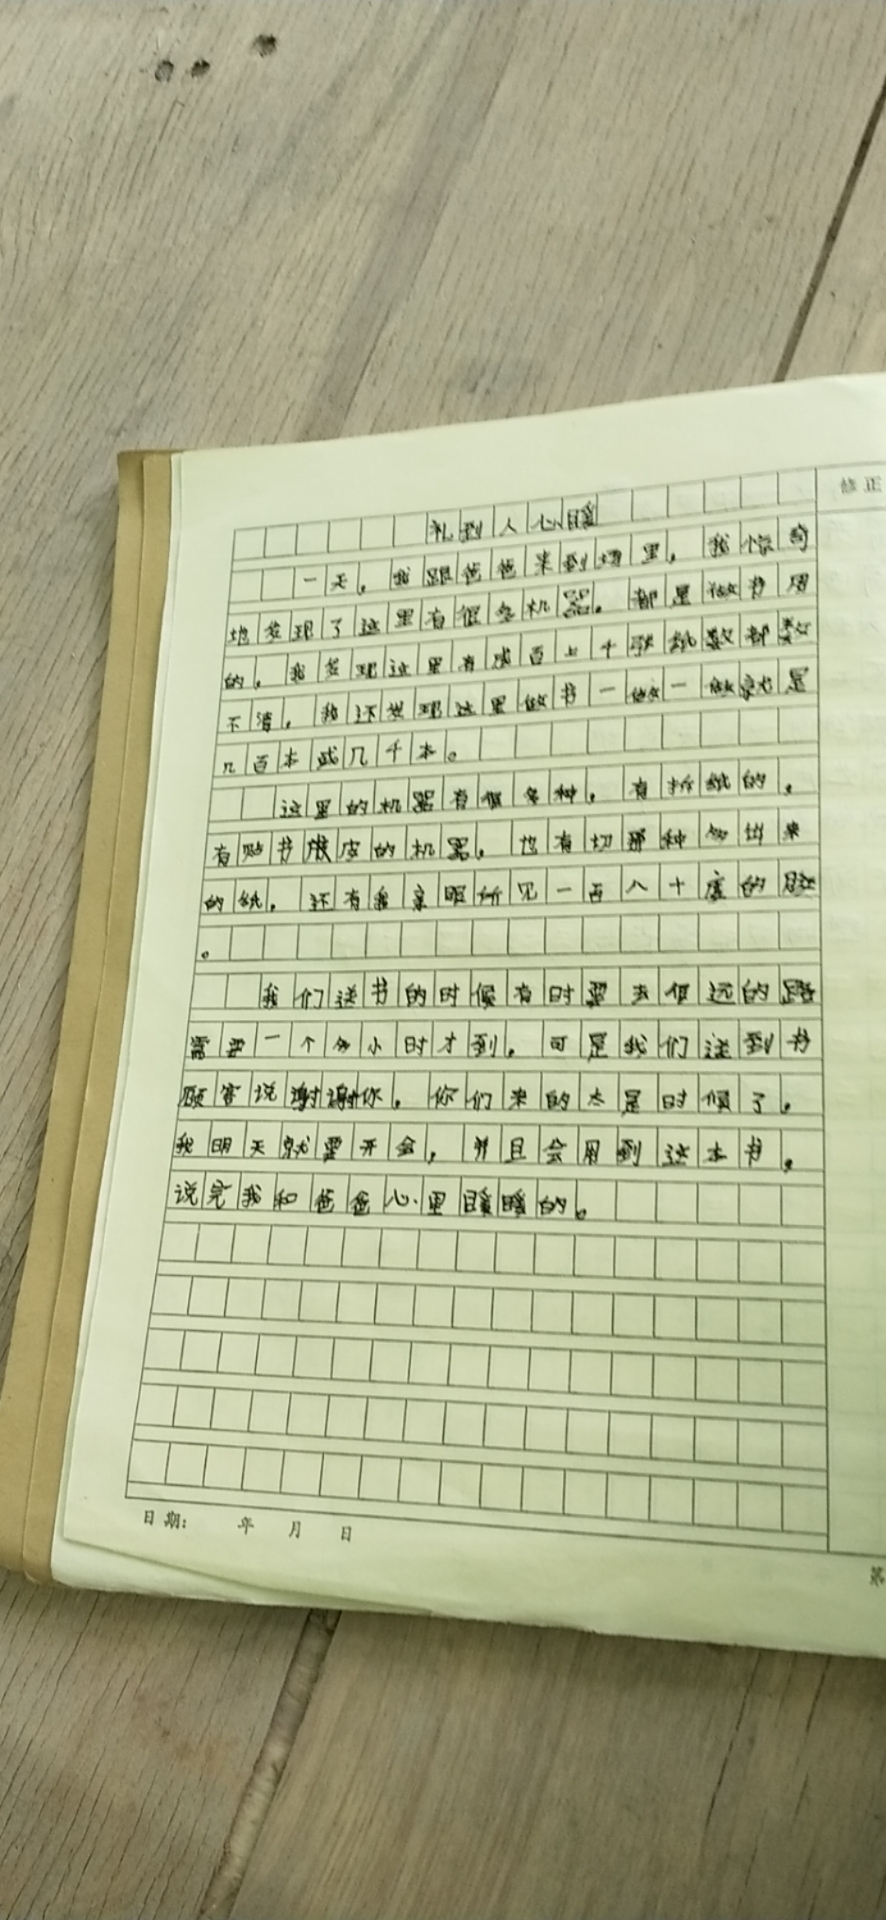 礼到人心暖
修正
一天，我跟爸爸来到场里，我惊奇
地发现了这里有很多机器。都是做书用
的，我发现这里有成百上千张纸数都数
不清，我还发现这里做书一做一做就是
几百本或几千本。
这里的机器有很多种，有折纸的，
有贴书皮的机器，也有切那种多出来
的纸，还有我亲眼所见一百八十度的
。
我们送书的时候有时要去很远的路
需要一个多小时才到，可是我们送到书
顾客说谢谢你，你们来的太是时候了，
我明天就要开会，并且会用到这本书，
说完我和爸爸心里暖暖的。
日期： 年 月 日
第